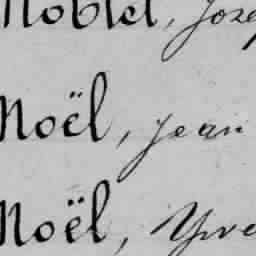 Noblet, Jose
Noël, Jean
Noël, Yve